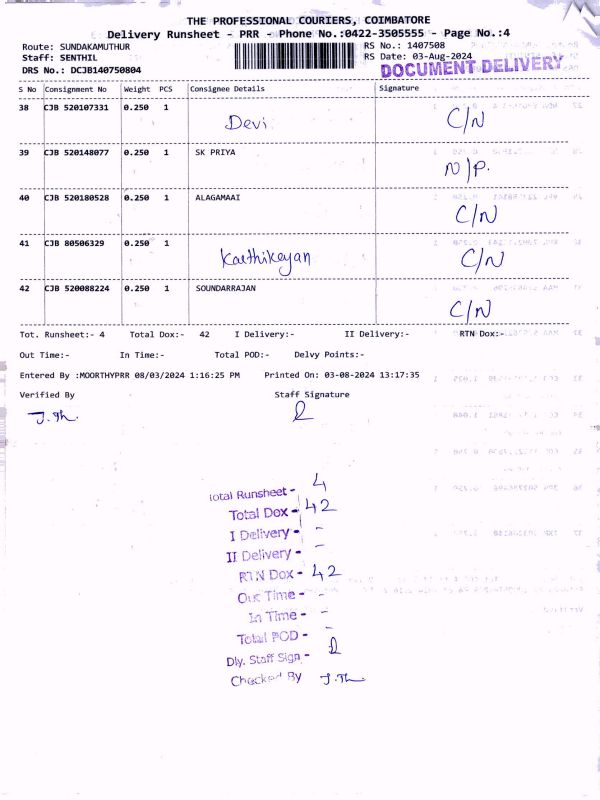 THE PROFESSIONAL COURIERS, COIMBATORE
Delivery Runsheet - PRR - Phone No.:0422-3505555 - Page No.:4
Route: SUNDAKAMUTHUR RS No.: 1407508
Staff: SENTHIL RS Date: 03-Aug-2024
DRS No.: DCJB140750804 DOCUMENT DELIVERY
S No Consignment No Weight PCS Consignee Details Signature
38 CJB 520107331 0.250 1 Devi C/N
39 CJB 520148077 0.250 1 SK PRIYA N/P.
40 CJB 520180528 0.250 1 ALAGAMAAI C/N
41 CJB 80506329 0.250 1 Karthikeyan C/N
42 CJB 520088224 0.250 1 SOUNDARRAJAN C/N
Tot. Runsheet:- 4 Total Dox:- 42 I Delivery:- II Delivery:- RTN Dox:-
Out Time:- In Time:- Total POD:- Delvy Points:-
Entered By :MOORTHYPRR 08/03/2024 1:16:25 PM Printed On: 03-08-2024 13:17:35
Verified By Staff Signature
Total Runsheet - 4
Total Dox - 42
I Delivery - -
II Delivery - -
RTN Dox - 42
Out Time - -
In Time - -
Total POD - -
Dly. Staff Sign -
Checked By